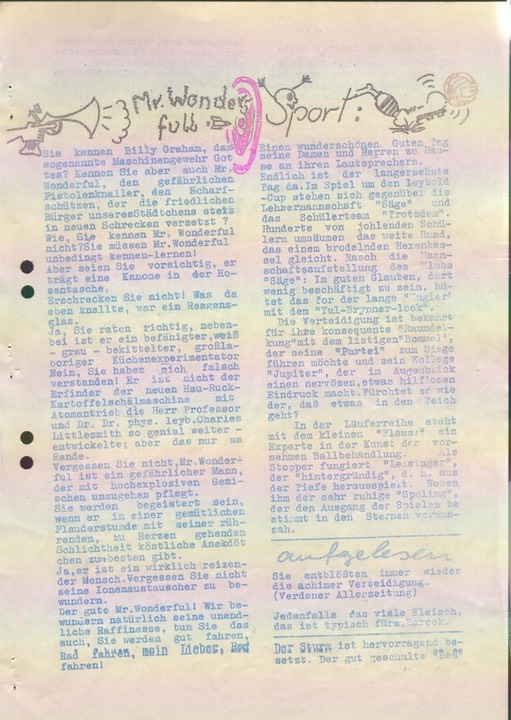 Mr. Wonder-
full
Sie kennen Billy Graham, das
sogenannte Maschinengewehr Got
tes? Kennen Sie aber auch Mr.
Wonderful, den gefährlichen
Pistolenknaller, den Scharf-
schützen, der die friedlichen
Bürger unseres Städtchens stets
in neuen Schrecken versetzt ?
Wie, Sie kennen Mr. Wonderful
nicht?Sie müssen Mr.Wonderful
unbedingt kennen-lernen!
Aber seien Sie vorsichtig, er
trägt eine Kanone in der Ho-
sentasche.
Erschrecken Sie nicht! Was da
eben knallte, war ein Reagenz-
glas.
Ja, Sie raten richtig, neben-
bei ist er ein befähigter,weiß
- grau - bekittelter, großla-
boriger Küchenexperimentator
Nein, Sie haben mich falsch
verstanden! Er ist nicht der
Erfinder der neuen Hau-Ruck-
Kartoffelschälmaschine mit
Atomantrieb die Herr Professor
und Dr. Dr. phys. leyb.Charles
Littlesmith so genial weiter -
entwickelte; aber das nur am
Rande.
Vergessen Sie nicht,Mr.Wonder-
ful ist ein gefährlicher Mann,
der mit hochexplosiven Gemi-
schen umzugehen pflegt.
Sie werden begeistert sein,
wenn er in einer gemütlichen
Plauderstunde mit seiner rüh-
renden, zu Herzen gehenden
Schlichtheit köstliche Anekdöt
chen zumbesten gibt.
Ja,er ist ein wirklich reizen-
der Mensch.Vergessen Sie nicht
seine Ionenaustauscher zu be-
wundern.
Der gute Mr.Wonderful! Wir be-
wundern natürlich seine unend-
liche Raffinesse, tun Sie das
auch, Sie werden gut fahren,
Rad fahren, mein Lieber, Rad
fahren!
Sport:
Einen wunderschönen Guten Tag
meine Damen und Herren zu Hau-
se an ihren Lautsprechern.
Endlich ist der langersehnte
Tag da.Im Spiel um den Leybold
-Cup stehen sich gegenüber die
Lehrermannschaft "Säge" und
das Schülerteam "Trotzdem".
Hunderte von johlenden Schü-
lern umsäumen das weite Rund,
das einem brodelnden Hexenkes-
sel gleicht. Rasch die Mann-
schaftsaufstellung des Clubs
"Säge": Im guten Glauben, dort
wenig beschäftigt zu sein, hü-
tet das Tor der lange "Kugler"
mit dem "Yul-Brynner-look".
Die Verteidigung ist bekannt
für ihre konsequente "Raumdek-
kung"mit dem listigen"Bommel',
der seine "Partei" zum Siege
führen möchte und sein Kollege
"Jupiter", der im Augenblick
einen nervösen,etwas hilflosen
Eindruck macht.Fürchtet er wie
der, daß etwas in den Teich
geht?
In der Läuferreihe steht
mit dem kleinen "Plauz" ein
Experte in der Kunst der vor-
nehmen Ballbehandlung. Als
Stopper fungiert "Leisinger",
der "hintergründig", d. h. aus
der Tiefe herausspielt. Neben
ihm der sehr ruhige "Spuling",
der den Ausgang des Spieles be
stimmt in den Sternen voraus-
sah.
aufgelesen
Sie entblößten immer wieder
die achimer Verteidigung.
(Verdener Allerzeitung)
Jedenfalls das viele Fleisch,
das ist typisch fürs,Barock.
Der Sturm ist hervorragend be-
setzt. Der gut geschulte "Boß"